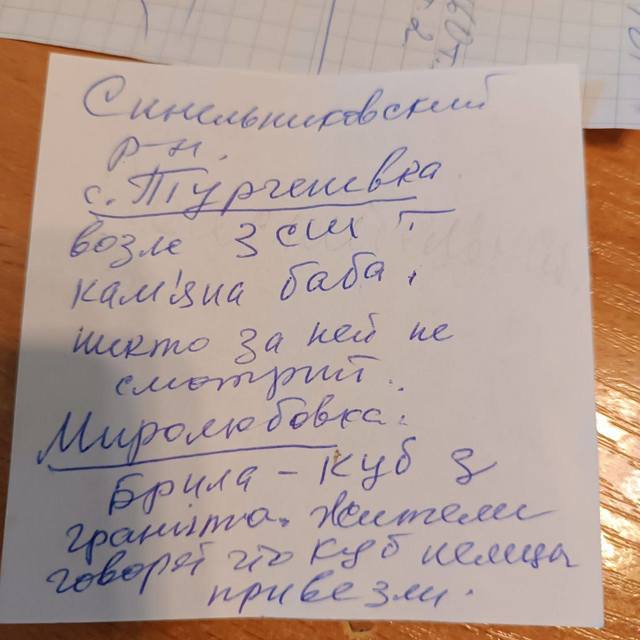 Синельниковский
р-н.
с. Тургеневка
возле
кам'яна баба.
никто за ней не
смотрит..
Миролюбовка.
Брила - куб з
граніта. Жители
говорят что куб немцы
привезли.